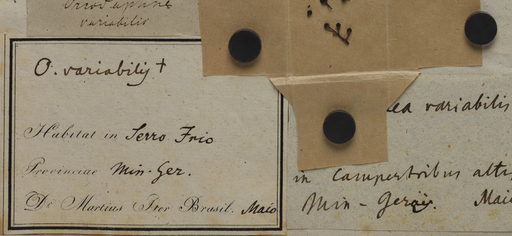 variabilis
O. variabilis †
Habitat in Serro Frio
Provinciae Min. Ger.
De Martius Iter Brasil. Maio
ea variabilis
in Campestribus altis
Min - Geraës. Maio